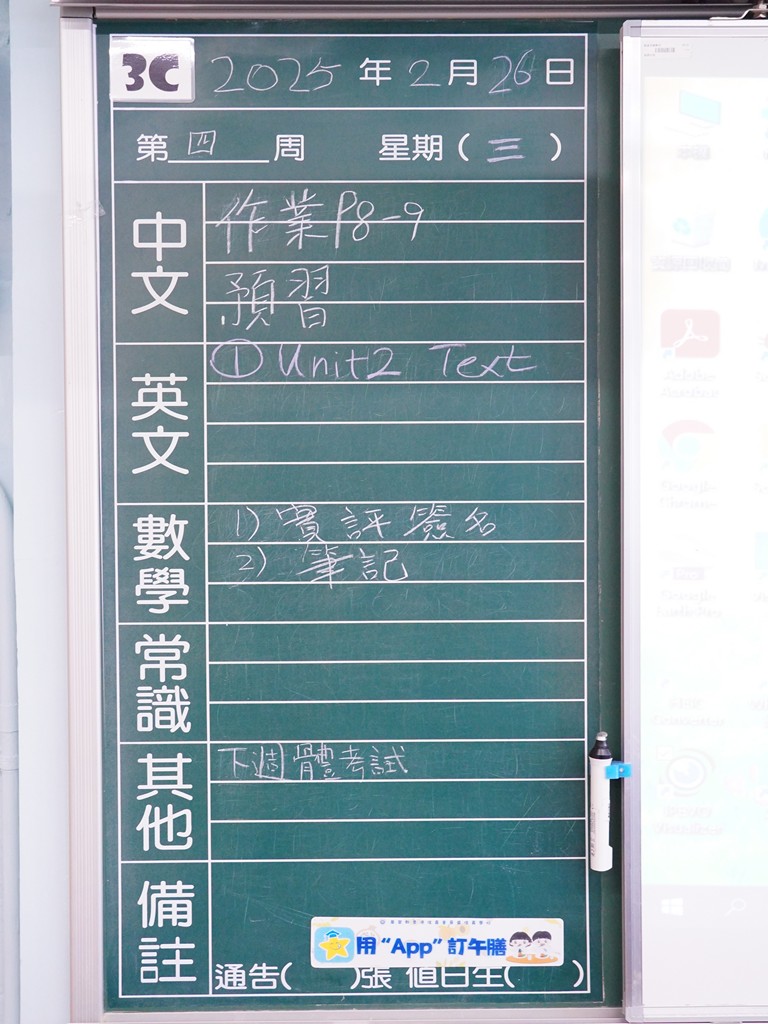 3C 2025年2月26日
第四周 星期(三)
中文
作業P8-9
預習
英文
① Unit2 Text
數學
1) 實評簽名
2) 筆記
常識
其他
下週體考試
備註
用“App”訂午膳
通告( )張 值日生( )